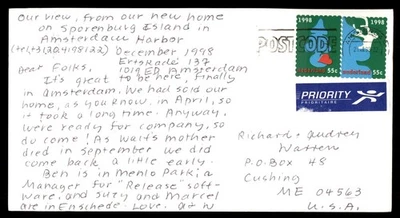 Our view, from our new home
on Sporenburg Island in
Amsterdam Harbor
December 1998
Ertskade 137
1019 EB Amsterdam
Dear Folks,
It's great to be here, finally
in Amsterdam. We had sold our
home, as you know, in April, so
it took a long time. Anyway,
we're ready for company, so
do come! As Walt's mother
died in September we did
come back a little early.
Ben is in Menlo Park; a
Manager for "Release" soft-
ware, and Suzy and Marcel
are in Enschede. Love, a + W
POSTCODE
1998
1998
nederland
55c
55c
PRIORITY
PRIORITAIRE
Richard + Audrey
Watten
P.O. Box 48
Cushing
ME 04563
U.S.A.